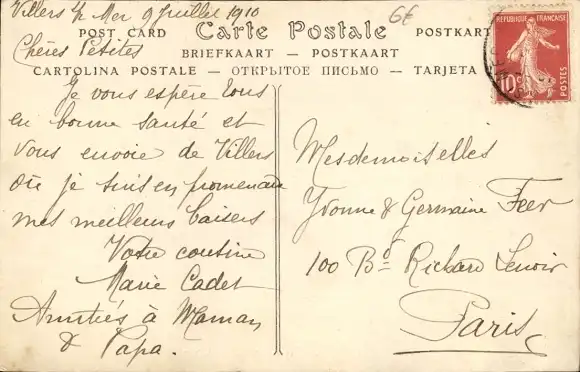 Villers s/ Mer 9 Juillet 1910
6€
POST CARD Carte Postale POSTKART
Chères Petites
BRIEFKAART — POSTKAART
CARTOLINA POSTALE — ОТКРЫТОЕ ПИСЬМО — TARJETA
REPUBLIQUE FRANÇAISE
10c
POSTES
Je vous espère tous
en bonne santé et
vous envoie de Villers
où je suis en promenade
mes meilleurs baisers
Votre cousine
Marie Cadet
Amitiés à Maman
& Papa.
Mesdemoiselles
Yvonne & Germaine Feer
100 Bd Richard Lenoir
Paris